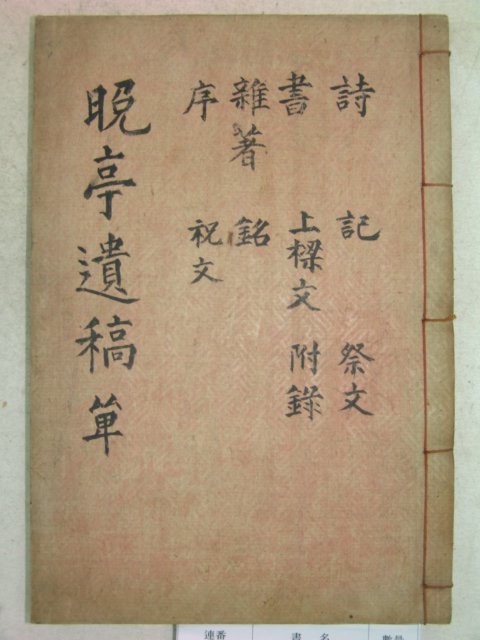 詩 記 祭文
書 上樑文 附錄
雜著 銘
序 祝文
晚亭遺稿 單
連番 書名